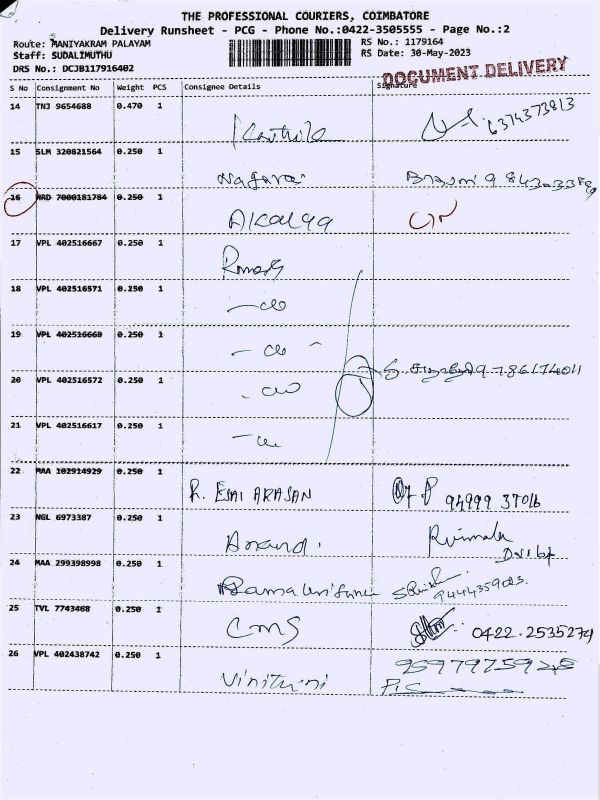 THE PROFESSIONAL COURIERS, COIMBATORE
Delivery Runsheet - PCG - Phone No.:0422-3505555 - Page No.:2
Route: MANIYAKRAM PALAYAM RS No.: 1179164
Staff: SUDALIMUTHU RS Date: 30-May-2023
DRS No.: DCJB117916402 DOCUMENT DELIVERY
S No Consignment No Weight PCS Consignee Details Signature
14 TNJ 9654688 0.470 1 Karthik 6374373813
15 SLM 320821564 0.250 1 Nagaraj
16 HRD 7000181784 0.250 1
17 VPL 402516667 0.250 1
18 VPL 402516571 0.250 1
19 VPL 402516668 0.250 1
20 VPL 402516572 0.250 1 9786174011
21 VPL 402516617 0.250 1
22 MAA 102914929 0.250 1 R. ESAI ARASAN 94999 37016
23 NGL 6973387 0.250 1 Anand.
24 MAA 299398998 0.250 1 9444359023
25 TVL 7743468 0.250 1 CMS 0422.2535274
26 VPL 402438742 0.250 1